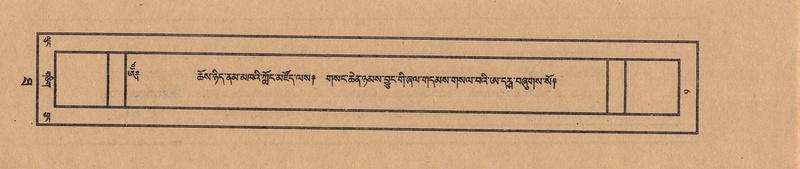 ཆོས་ཉིད་ནམ་མཁའི་ཀློང་མཛོད་ལས༔ གསང་ཆེན་ཉམས་བྱུང་གི་ཞལ་གདམས་གསལ་བའི་ཨ་དརྴ་བཞུགས་སོ༔